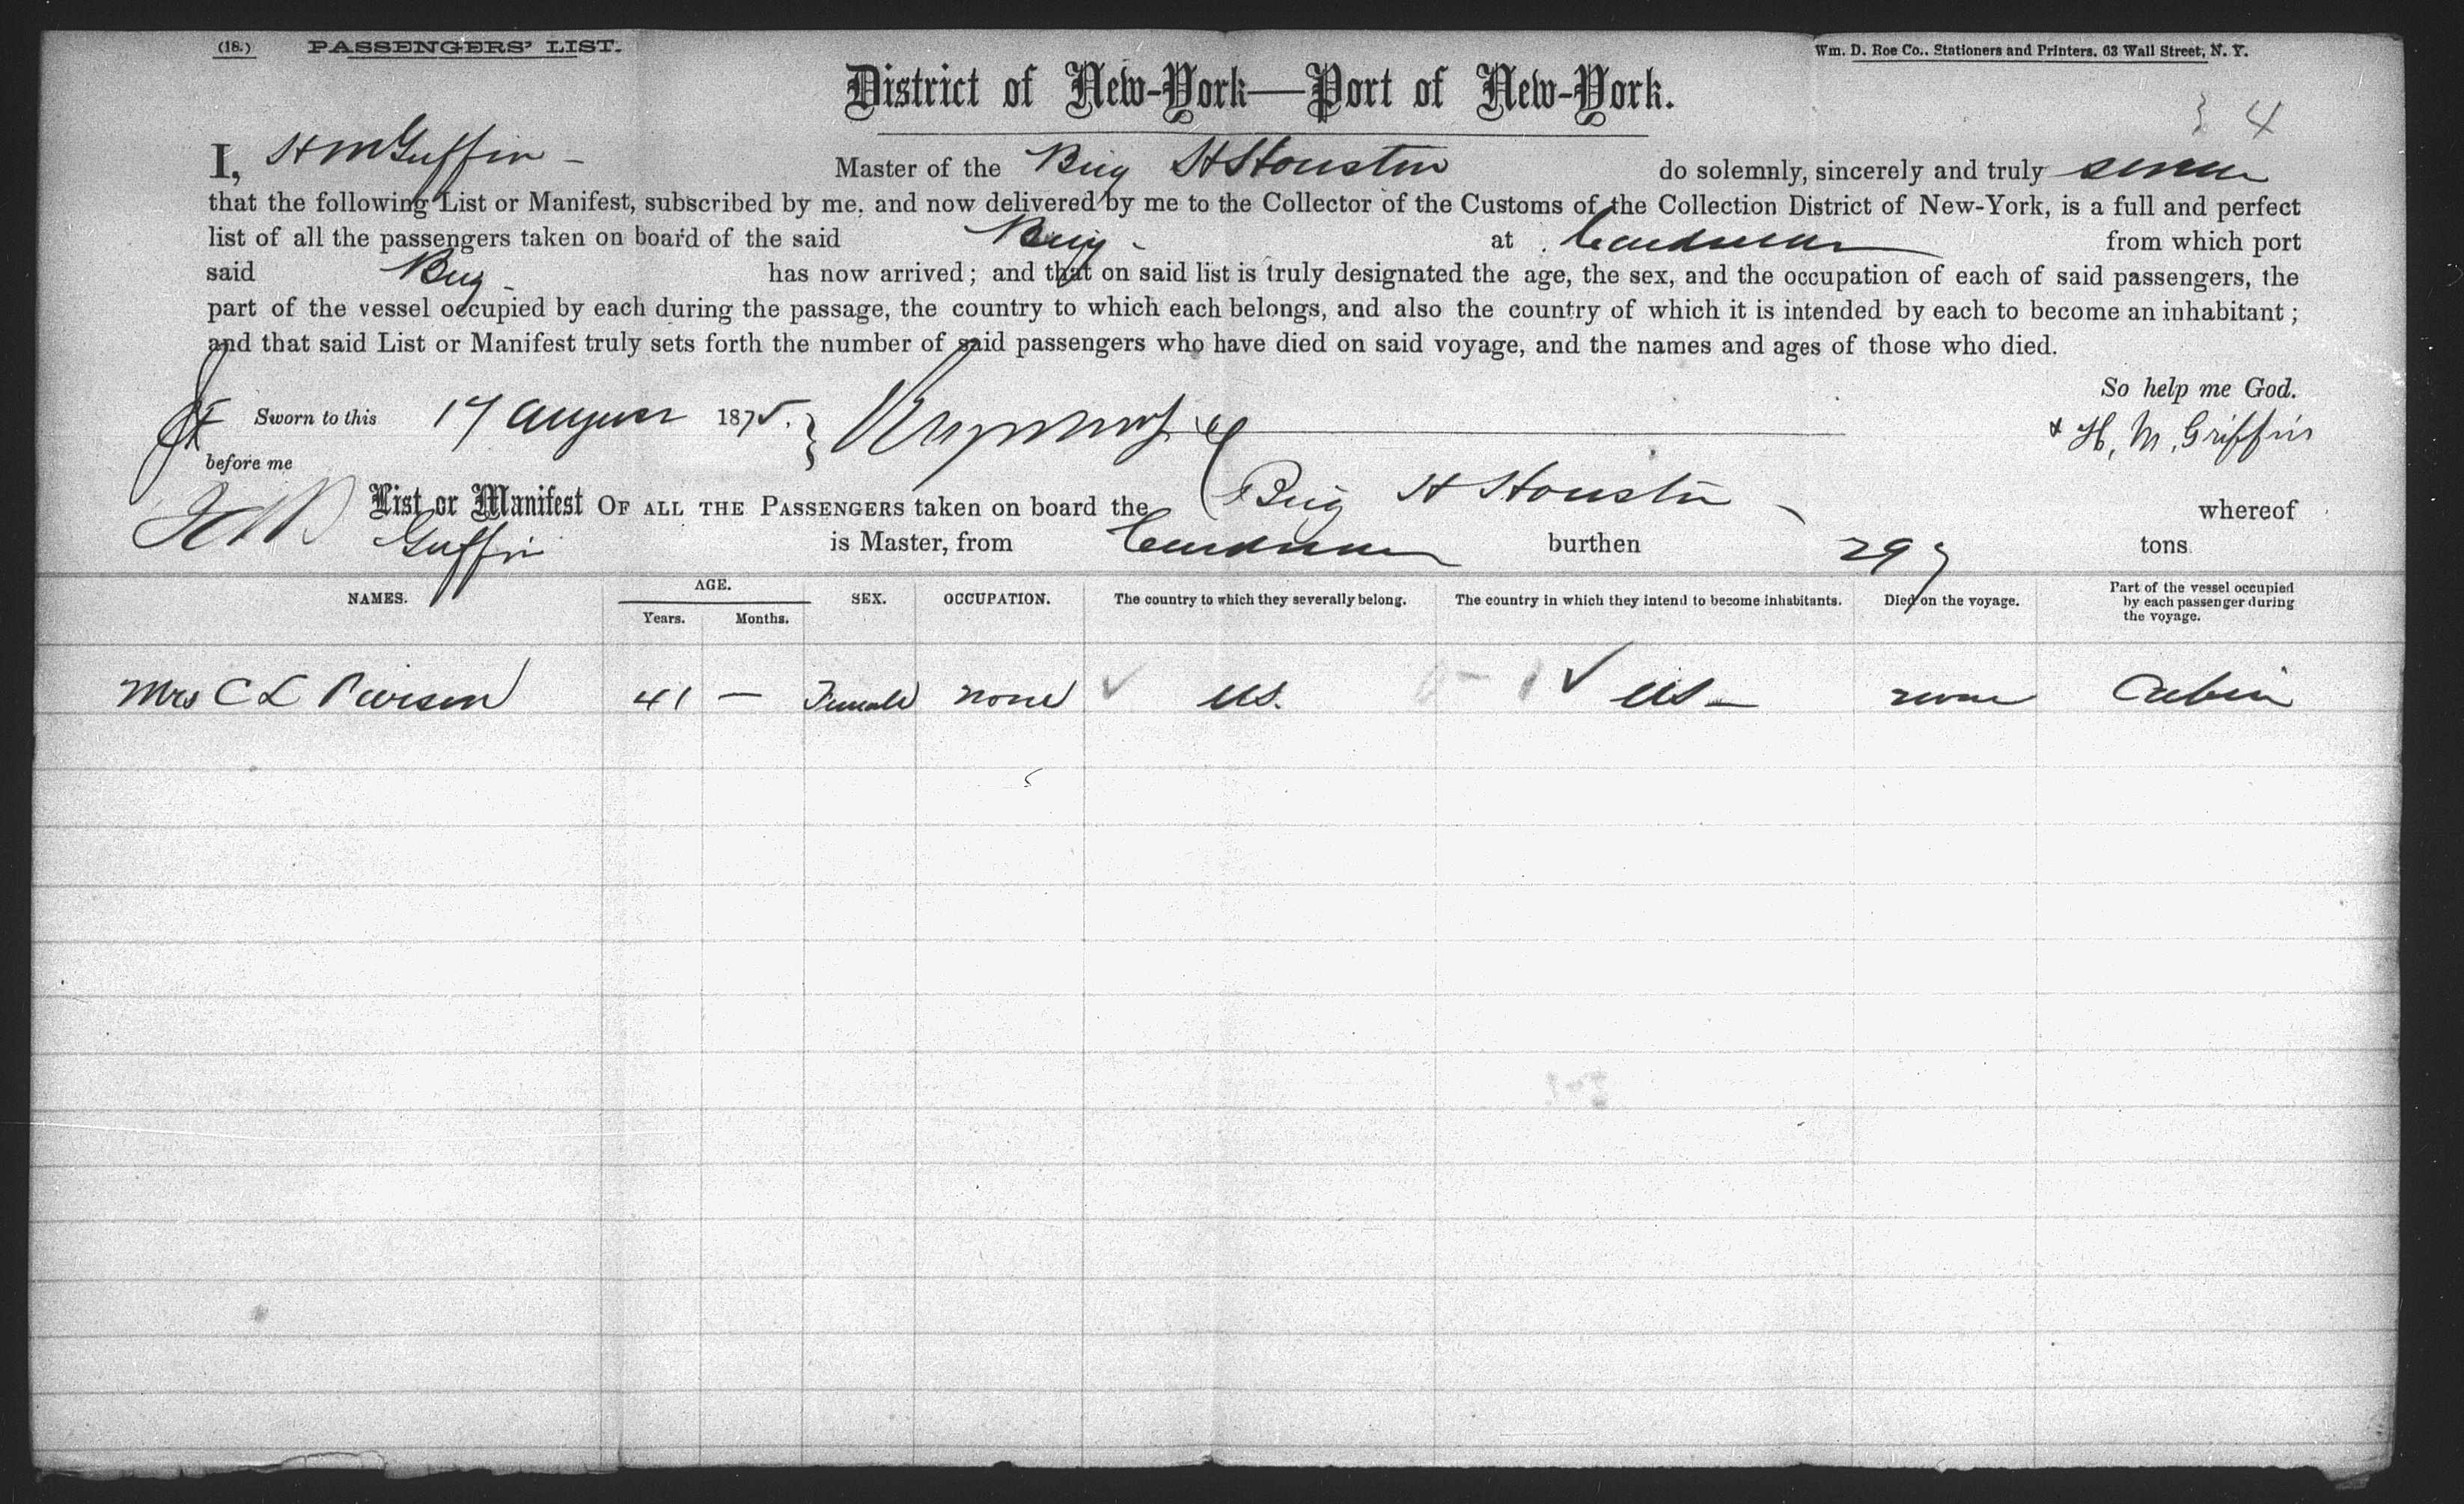 (18.) PASSENGERS' LIST. Wm. D. Roe Co., Stationers and Printers, 63 Wall Street, N. Y.
District of New-York—Port of New-York.
4
I, H M Griffin - Master of the Brig H Houston do solemnly, sincerely and truly swear
that the following List or Manifest, subscribed by me, and now delivered by me to the Collector of the Customs of the Collection District of New-York, is a full and perfect
list of all the passengers taken on board of the said Brig - at Cardenas from which port
said Brig - has now arrived; and that on said list is truly designated the age, the sex, and the occupation of each of said passengers, the
part of the vessel occupied by each during the passage, the country to which each belongs, and also the country of which it is intended by each to become an inhabitant;
and that said List or Manifest truly sets forth the number of said passengers who have died on said voyage, and the names and ages of those who died.
So help me God.
Sworn to this 17 August 1875. H. M. Griffin
before me
List or Manifest OF ALL THE PASSENGERS taken on board the Brig H Houston whereof
Griffin is Master, from Cardenas burthen 297 tons
NAMES. AGE. SEX. OCCUPATION. The country to which they severally belong. The country in which they intend to become inhabitants. Died on the voyage. Part of the vessel occupied by each passenger during the voyage.
Years. Months.
Mrs C L Pierson 41 — Female none ✓ US. ✓ US — none Cabin